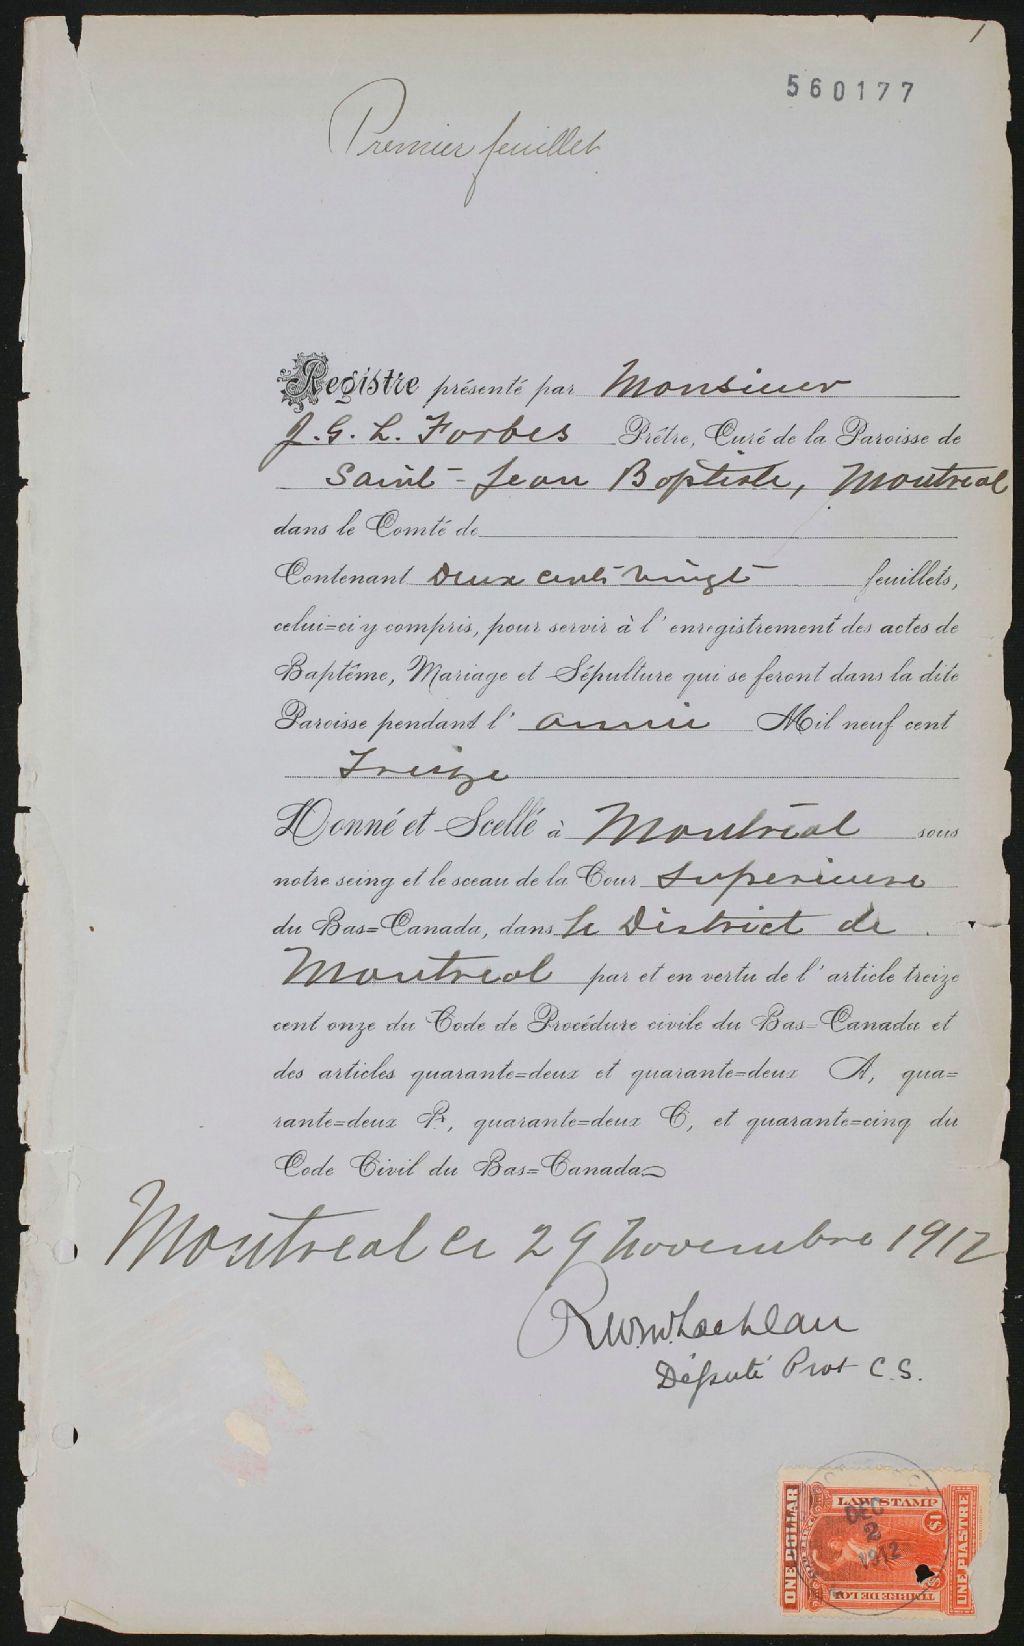 1
560177
Premier feuillet
Registre présenté par Monsieur
J. G. L. Forbes Prêtre, Curé de la Paroisse de
Saint-Jean Baptiste, Montreal
dans le Comté de
Contenant Deux cents vingt feuillets,
celui=ci y compris, pour servir à l'enregistrement des actes de
Baptême, Mariage et Sépulture qui se feront dans la dite
Paroisse pendant l'année Mil neuf cent
Treize
Donné et Scellé à Montréal sous
notre seing et le sceau de la Cour Superieure
du Bas=Canada, dans le District de
Montreal par et en vertu de l'article treize
cent onze du Code de Procédure civile du Bas=Canada et
des articles quarante=deux et quarante=deux A, qua=
rante=deux B, quarante=deux C, et quarante=cinq du
Code Civil du Bas=Canada
Montreal le 29 Novembre 1912
Député Prot C.S.
ONE DOLLAR
LAW STAMP
$1
DEC
2
1912
TIMBRE DE LOI
UNE PIASTRE